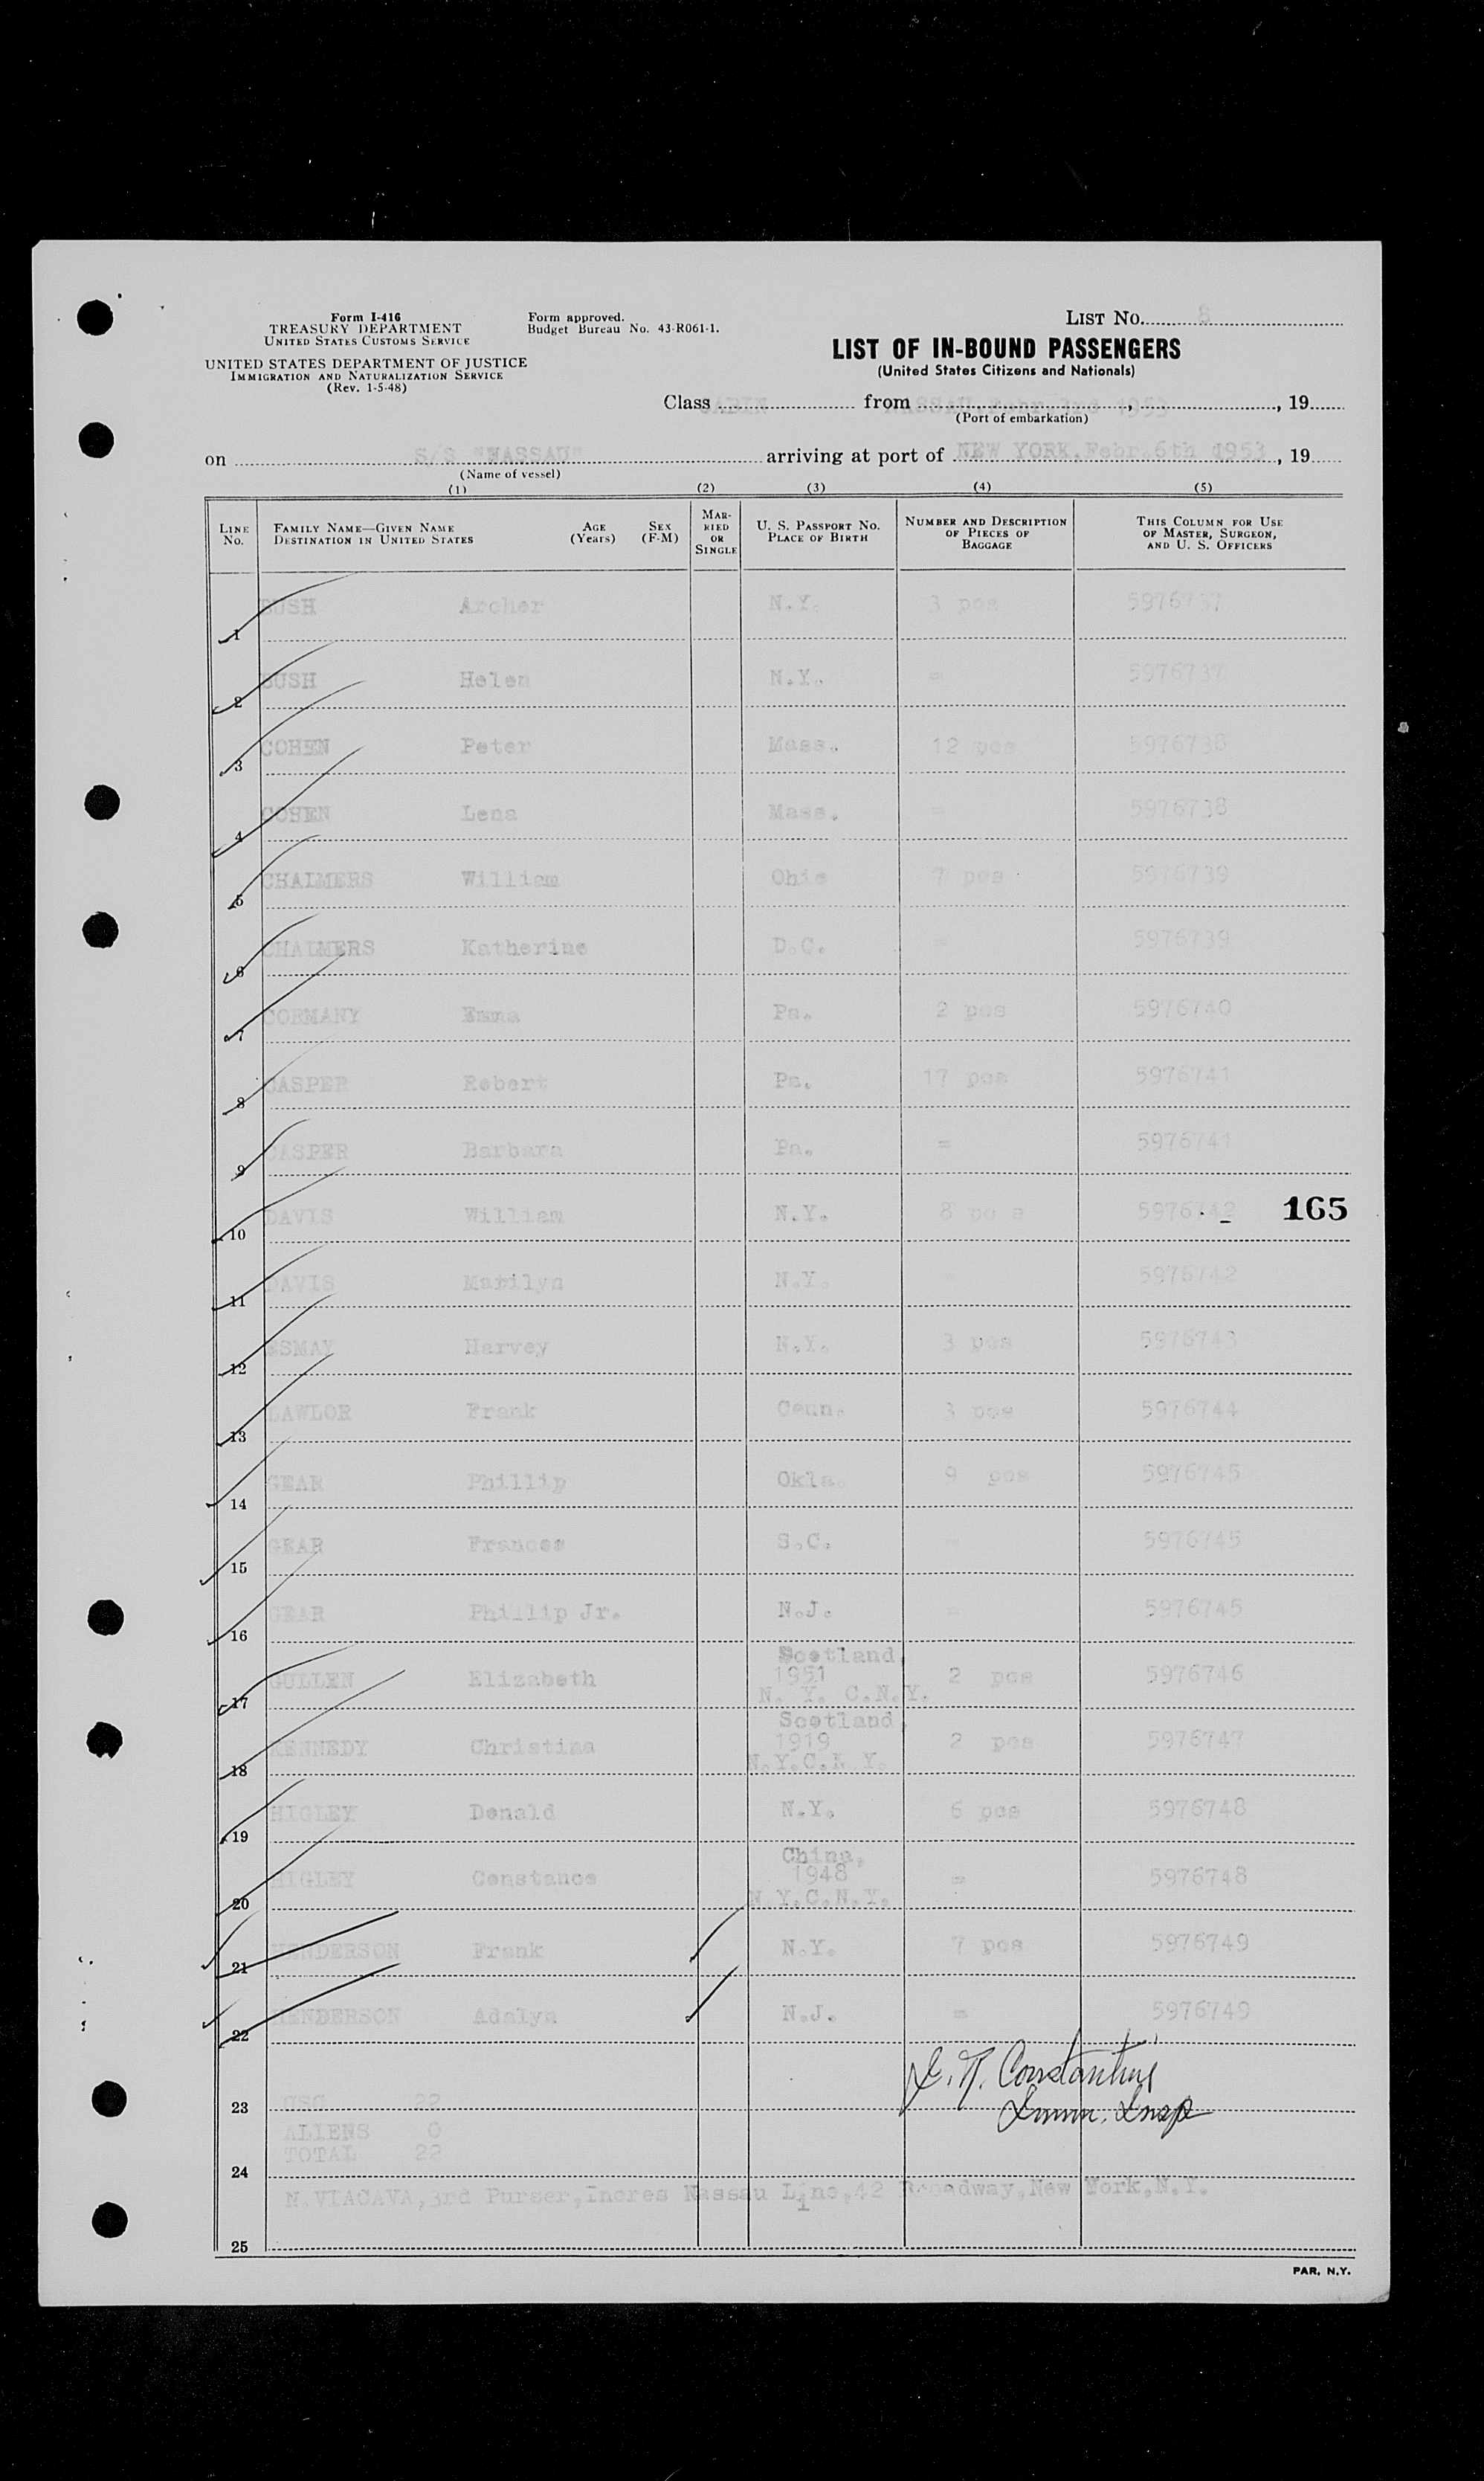 Form I-416
TREASURY DEPARTMENT
UNITED STATES CUSTOMS SERVICE
UNITED STATES DEPARTMENT OF JUSTICE
IMMIGRATION AND NATURALIZATION SERVICE
(Rev. 1-5-48)
Form approved.
Budget Bureau No. 43-R061-1.
LIST No. 8
LIST OF IN-BOUND PASSENGERS
(United States Citizens and Nationals)
Class CABIN from NASSAU, Febr. 3rd 1953, 19
(Port of embarkation)
on S/S "NASSAU" arriving at port of NEW YORK, Febr. 6th 1953, 19
(Name of vessel)
(1) (2) (3) (4) (5)
LINE No. FAMILY NAME—GIVEN NAME DESTINATION IN UNITED STATES AGE (Years) SEX (F-M) MARRIED OR SINGLE U. S. PASSPORT No. PLACE OF BIRTH NUMBER AND DESCRIPTION OF PIECES OF BAGGAGE THIS COLUMN FOR USE OF MASTER, SURGEON, AND U. S. OFFICERS
1 BUSH Archer N.Y. 3 pcs 5976737
2 BUSH Helen N.Y. = 5976737
3 COHEN Peter Mass. 12 pcs 5976738
4 COHEN Lena Mass. = 5976738
5 CHALMERS William Ohio 7 pcs 5976739
6 CHALMERS Katherine D.C. = 5976739
7 CORMANY Emma Pa. 2 pcs 5976740
8 CASPER Robert Pa. 17 pcs 5976741
9 CASPER Barbara Pa. = 5976741
10 DAVIS William N.Y. 8 pc s 5976742 165
11 DAVIS Marilyn N.Y. = 5976742
12 ESMAY Harvey N.Y. 3 pcs 5976743
13 LAWLOR Frank Conn. 3 pcs 5976744
14 GEAR Phillip Okla. 9 pcs 5976745
15 GEAR Frances S.C. = 5976745
16 GEAR Phillip Jr. N.J. = 5976745
17 GULLEN Elizabeth Scotland, 1951 N. Y. C.N.Y. 2 pcs 5976746
18 KENNEDY Christina Scotland, 1919 N.Y.C.N.Y. 2 pcs 5976747
19 HIGLEY Donald N.Y. 6 pcs 5976748
20 HIGLEY Constance China, 1948 N.Y.C.N.Y. = 5976748
21 HENDERSON Frank N.Y. 7 pcs 5976749
22 HENDERSON Adalyn N.J. = 5976749
Constantine
Imm. Insp
23 USC 22
ALIENS 0
TOTAL 22
24
N. VIACAVA, 3rd Purser, Incres Nassau Line, 42 Broadway, New York, N.Y.
25
PAR, N.Y.